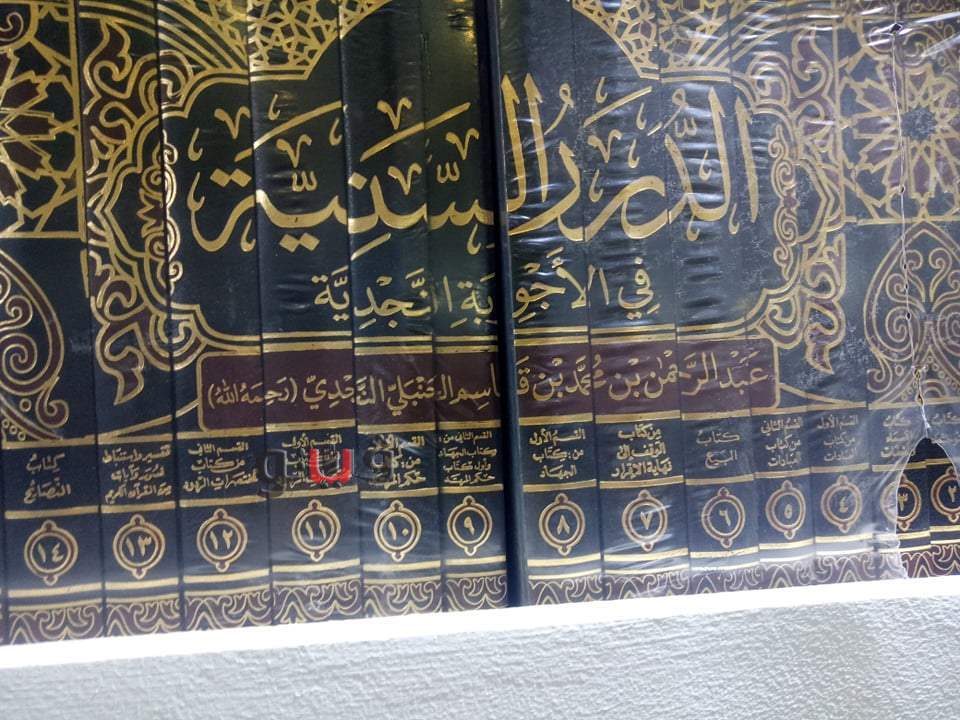 الدُّرَرُ السَّنِيَّة
فِي الأَجْوِبَةِ النَّجْدِيَّة
عَبْدُ الرَّحْمٰن بن مُحَمَّد بْن قَاسِم الحَنبَليّ النَّجْدِيّ (رَحِمَهُ اللهُ)
٢
٣
القسم الأول
من كتاب
العبادات
٤
القسم الثاني
من كتاب
العبادات
٥
كتاب
البيع
٦
من كتاب
الوقف إلى
نهاية الإقرار
٧
القسم الأول
من: كتاب
الجهاد
٨
القسم الثاني من:
كتاب الجهاد
وأول كتاب
حكم المرتد
٩
من: كتاب
حكم المرتد
١٠
القسم الأول
١١
القسم الثاني
من كتاب
مختصرات الردود
١٢
تفسير واستنباط
لسور وآيات
من القرآن الكريم
١٣
كتاب
النصائح
١٤